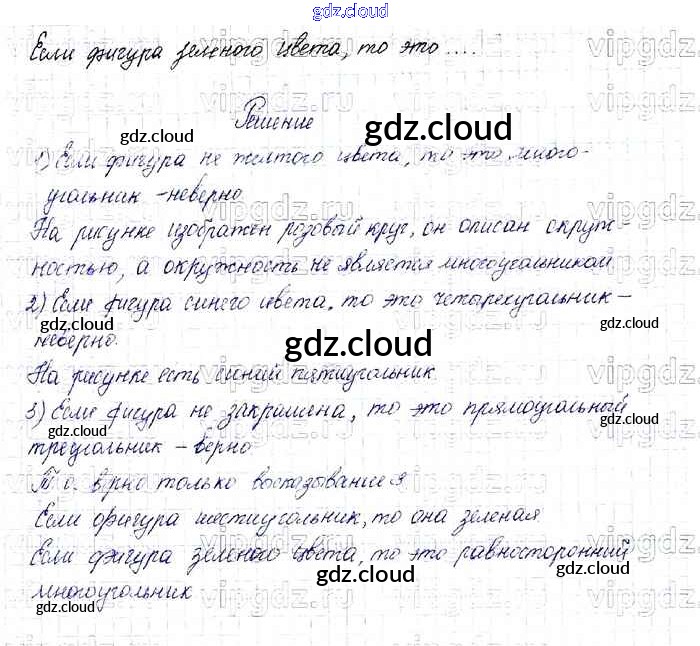 gdz.cloud
Если фигура зеленого цвета, то это ....
Решение
gdz.cloud
gdz.cloud
1) Если фигура не желтого цвета, то это много-
угольник - неверно
gdz.cloud
На рисунке изображен розовый круг, он описан окруж-
ностью, а окружность не является многоугольником
2) Если фигура синего цвета, то это четырехугольник -
неверно.
gdz.cloud
gdz.cloud
gdz.cloud
На рисунке есть синий пятиугольник
3) Если фигура не закрашена, то это прямоугольный
треугольник - верно
gdz.cloud
gdz.cloud
Т.о. врно только восказывание 3
Если фигура шестиугольник, то она зеленая
Если фигура зеленого цвета, то это равносторонний
многоугольник
gdz.cloud
gdz.cloud
gdz.cloud